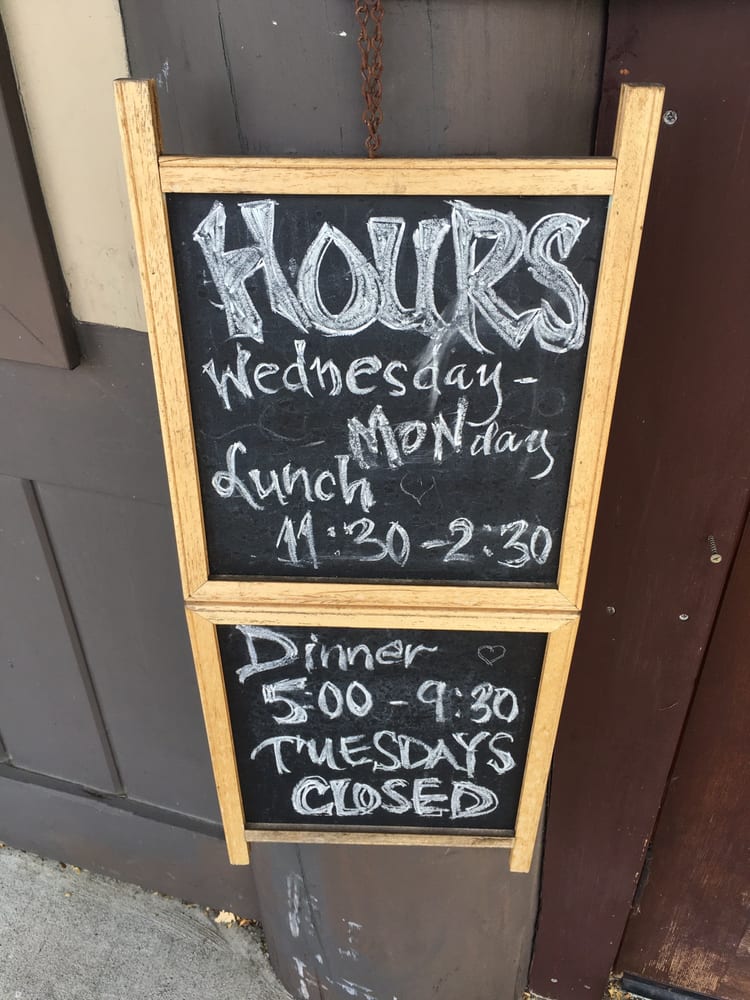 HOURS
Wednesday -
MONday
Lunch
11:30 - 2:30
Dinner
5:00 - 9:30
TUESDAYS
CLOSED